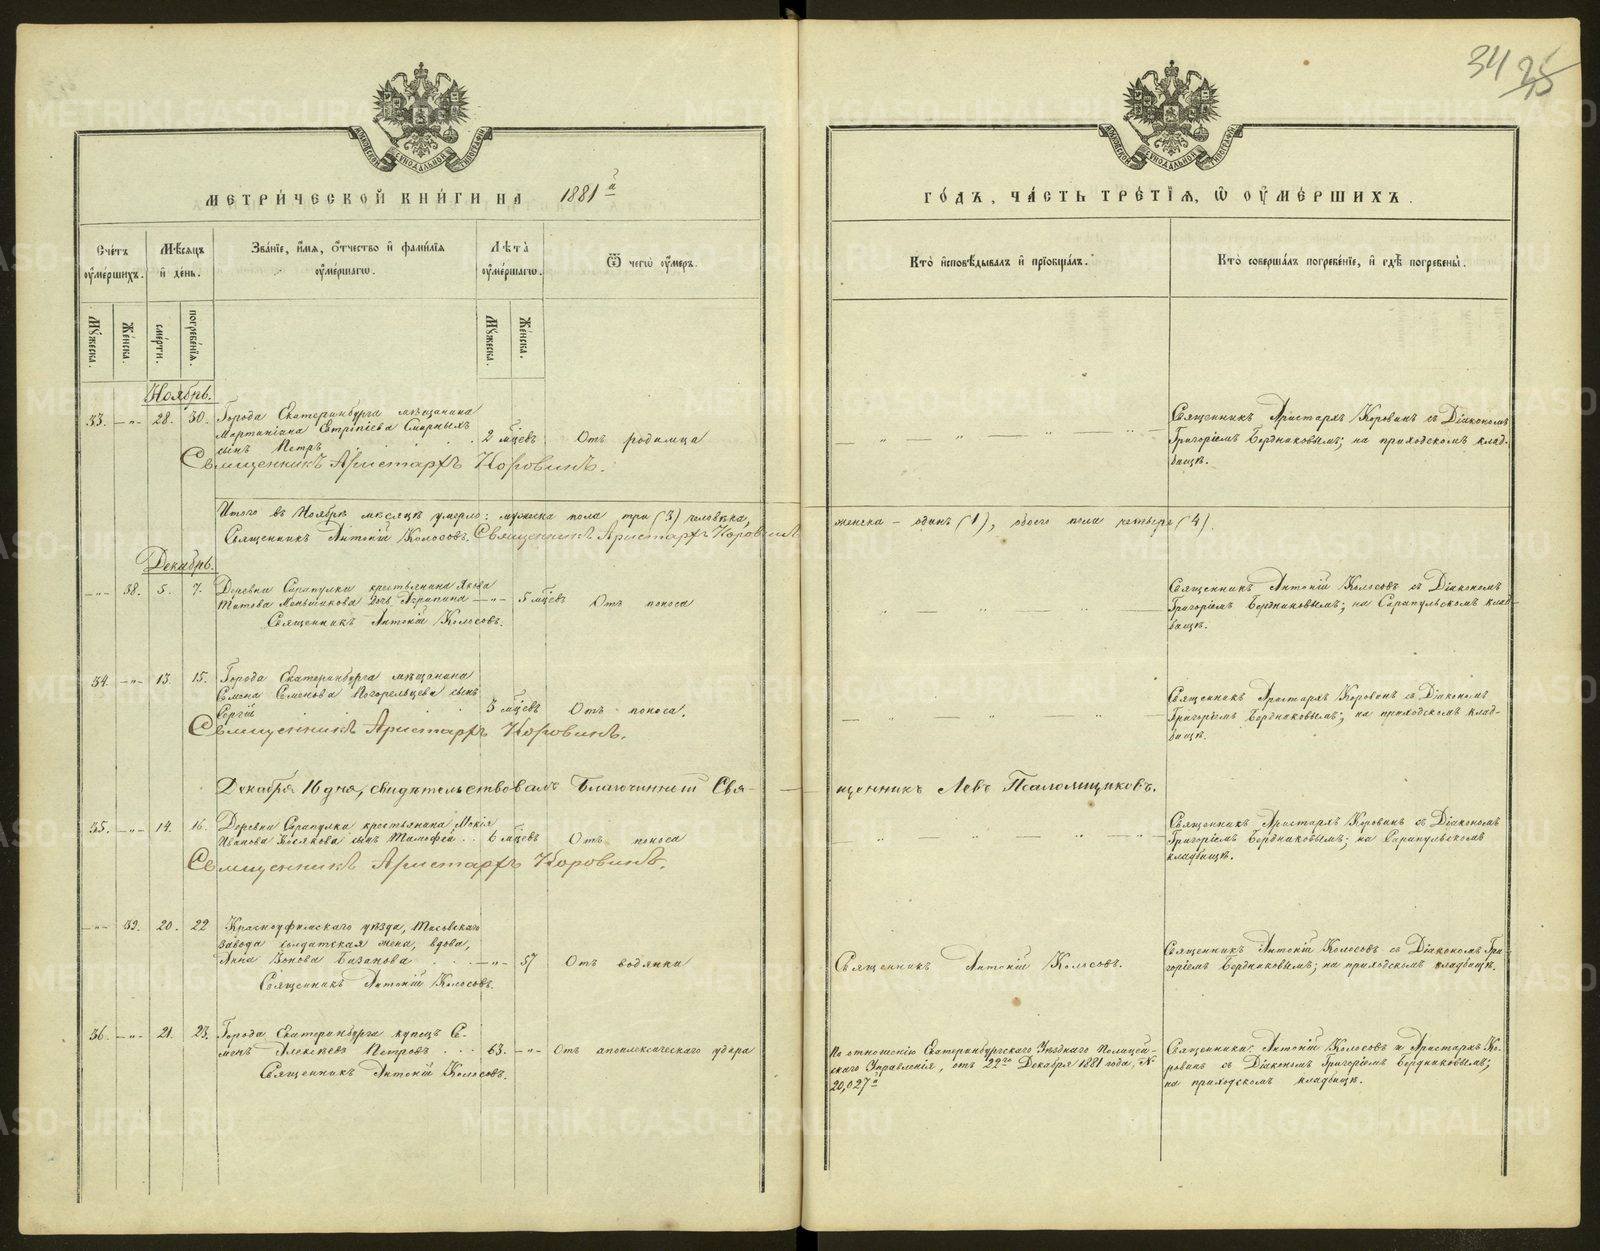 34 35
МЕТРИЧЕСКОЙ КНИГИ НА 1881й
ГОДЪ, ЧАСТЬ ТРЕТІЯ, Ѽ ОУМЕРШИХЪ.
Счетъ оумершихъ.
Мѣсяцъ и день.
Званіе, имя, отчество и фамилія оумершагω.
Лѣта оумершагω.
Ѿ чегω оумеръ.
Кто исповѣдывалъ и пріобщалъ.
Кто совершалъ погребеніе, и гдѣ погребены.
Мꙋжеска.
Женска.
смерти.
погребенія.
Мꙋжеска.
Женска.
Ноябрь.
33. —„— 28. 30. Города Екатеринбурга мѣщанина
Мартиніана Смирныхъ
сынъ Петръ 2 мцевъ Отъ родимца
Священникъ Аристархъ Коровинъ.
Священникъ Аристархъ Коровинъ съ Діакономъ
Григоріемъ Бердниковымъ; на приходскомъ клад-
бищѣ.
Итого въ Ноябрѣ мѣсяцѣ умерло: мужеска пола три (3) человѣка, женска – одинъ (1), обоего пола четыре (4).
Священникъ Антоній Колосовъ. Священникъ Аристархъ Коровинъ
Декабрь.
—„— 38. 5. 7. Деревни Сарапулки крестьянина Якова
Титова Меньшикова дочь Агрипина —„— 5 мцевъ Отъ поноса
Священникъ Антоній Колосовъ.
Священникъ Антоній Колосовъ съ Діакономъ
Григоріемъ Бердниковымъ; на Сарапульскомъ клад-
бищѣ.
34. —„— 13. 15. Города Екатеринбурга мѣщанина
Семена Семенова Погорельцева сынъ
Сергій 3 мцевъ Отъ поноса.
Священникъ Аристархъ Коровинъ.
Священникъ Аристархъ Коровинъ съ Діакономъ
Григоріемъ Бердниковымъ; на приходскомъ клад-
бищѣ.
Декабря 16 дня, свидѣтельствовалъ Благочинный Свя-
щенникъ Левъ Псаломщиковъ.
35. —„— 14. 16. Деревни Сарапулки крестьянина Мокія
Иванова Косякова сынъ Тимофей 6 мцевъ Отъ поноса
Священникъ Аристархъ Коровинъ.
Священникъ Аристархъ Коровинъ съ Діакономъ
Григоріемъ Бердниковымъ; на Сарапульскомъ
кладбищѣ.
—„— 39. 20. 22 Красноуфимскаго уѣзда,
завода солдатская жена, вдова,
Анна Базанова —„— 57 Отъ водянки
Священникъ Антоній Колосовъ.
Священникъ Антоній Колосовъ.
Священникъ Антоній Колосовъ съ Діакономъ Гри-
горіемъ Бердниковымъ; на приходскомъ кладбищѣ.
36. —„— 21. 23. Города Екатеринбурга купецъ Се-
менъ Алексѣевъ Петровъ 63. —„— Отъ апоплексическаго удара
Священникъ Антоній Колосовъ.
По отношенію Екатеринбургскаго Уѣзднаго Полицей-
скаго Управленія, отъ 22го Декабря 1881 года, №
20,027й
Священники: Антоній Колосовъ и Аристархъ Ко-
ровинъ съ Діакономъ Григоріемъ Бердниковымъ;
на приходскомъ кладбищѣ.
METRIKI.GASO-URAL.RU